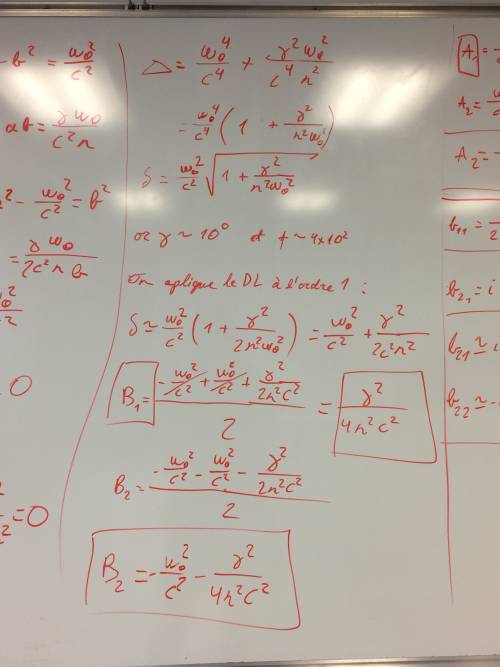 - b² = w₀²/c²
ab = γw₀/c²n
² - w₀²/c² = b²
= γw₀/2c²nb
= 0
= 0
Δ = w₀⁴/c⁴ + γ²w₀²/c⁴n²
= w₀⁴/c⁴ (1 + γ²/n²w₀²)
δ = w₀²/c² √(1 + γ²/n²w₀²)
or γ ~ 10⁰ et f ~ 4x10²
On aplique le DL à l'ordre 1 :
δ ≃ w₀²/c² (1 + γ²/2n²w₀²) = w₀²/c² + γ²/2c²n²
B₁ = (-w₀²/c² + w₀²/c² + γ²/2n²c²)/2 = γ²/4n²c²
B₂ = (-w₀²/c² - w₀²/c² - γ²/2n²c²)/2
B₂ = -w₀²/c² - γ²/4n²c²
A₁ =
A₂ =
A₂ =
b₁₁ =
b₂₁ = i
b₂₁ ≃
b₂₂ ≃ -